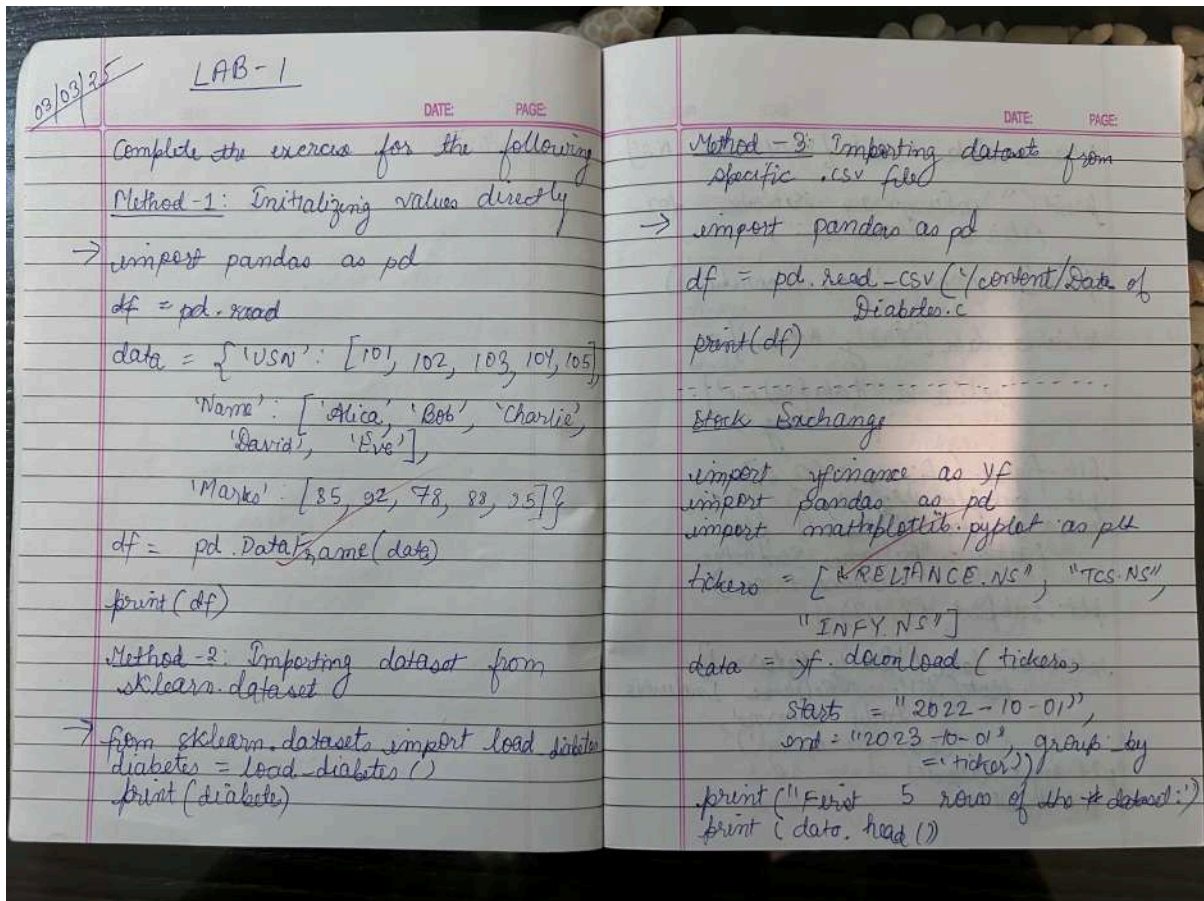 03/03/25
LAB-1
DATE: PAGE:
Complete the exercise for the following
Method-1: Initializing values directly
→ import pandas as pd
df = pd.read
data = {'USN': [101, 102, 103, 104, 105],
'Name': ['Alica', 'Bob', 'Charlie',
'David', 'Eve'],
'Marks': [85, 92, 78, 88, 95]}
df = pd.DataFrame(data)
print(df)
Method-2: Importing dataset from
sklearn.dataset
→ from sklearn.datasets import load_diabetes
diabetes = load_diabetes()
print(diabete)
DATE: PAGE:
Method-3: Importing dataset from
specific .csv file
→ import pandas as pd
df = pd.read_csv('/content/Data of
Diabetes.c
print(df)
Stock Exchange
import yfinance as yf
import pandas as pd
import mattaplotlib.pyplot as plt
tickers = ["RELIANCE.NS", "TCS.NS",
"INFY.NS"]
data = yf.download(tickers,
start = "2022-10-01",
end = "2023-10-01", group_by
= 'ticker')
print("First 5 rows of the dataset:")
print(data.head())